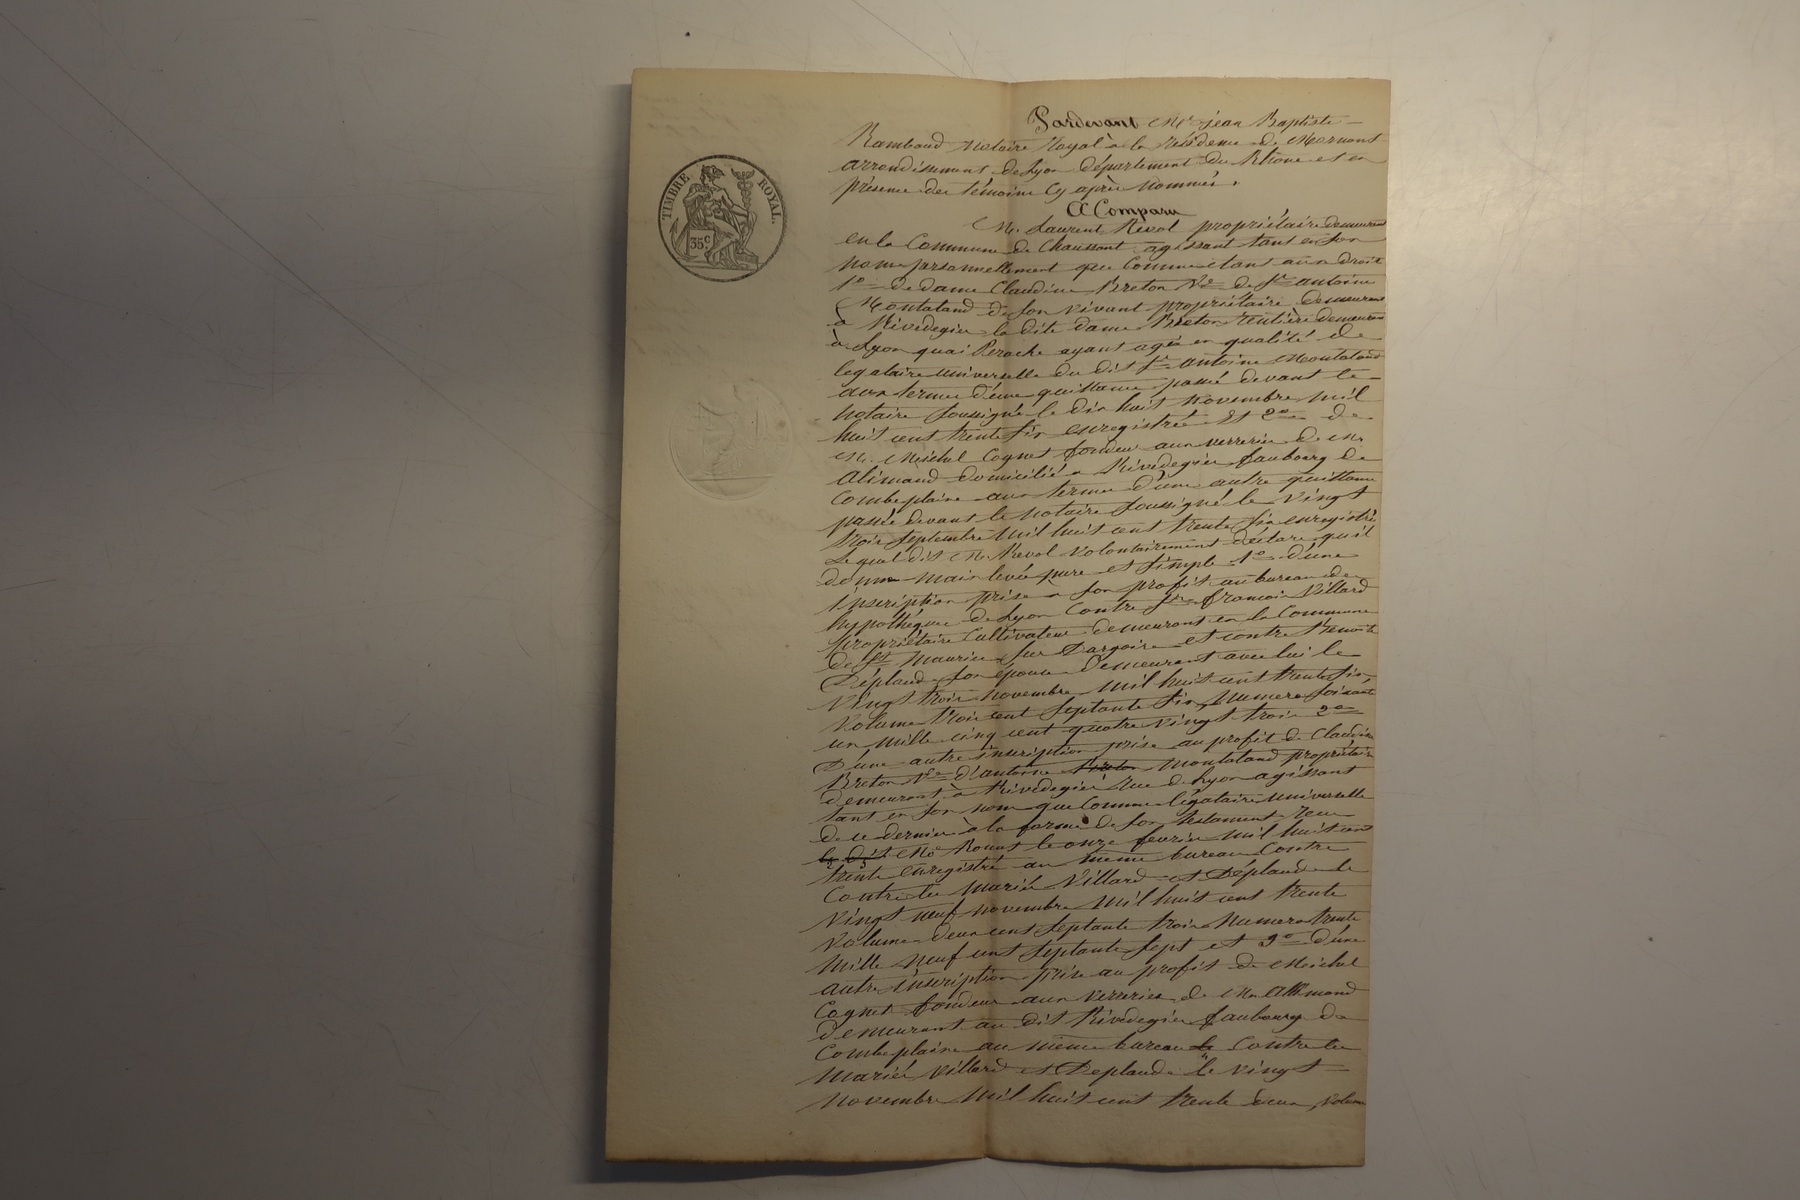 TIMBRE ROYAL.
35c
Pardevant Me jean Baptiste
Rambaud Notaire Royal à la résidence de Mornant
arrondissement de Lyon département du Rhône et en
présence des témoins cy après Nommés.
A Comparu
M. Laurent Revol propriétaire demeurant
en la Commune de Chaussant agissant tant en son
nom personnellement que Comme étant aux droits
1o de dame Claudine Breton Ve de Sr antoine
Montaland de son vivant propriétaire demeurant
à Rivedegier la dite dame Breton rentière demeurant
à Lyon quai Perache ayant agie en qualité de
legataire universelle du dit Sr antoine Montaland
aux termes d'une quittance passé devant le
Notaire soussigné le dix huit Novembre mil
huit cent trente six enregistrée Et 2o de
M. Michel Cognet fondeur aux verreries de M.
Alimand domicilié à Rivedegier faubourg de
Combeplaine aux termes d'une autre quittance
passée devant le Notaire soussigné le vingt
trois septembre mil huit cent trente six enregistré
Lequel dit M. Revol volontairement déclare qu'il
donne main levée pure et simple 1o d'une
inscription prise à son profit au bureau de
hypothèques de Lyon Contre Sr françois Villard
propriétaire Cultivateur demeurant en la Commune
de St Maurice sur Dargoire et contre Benoite
Déplaude son épouse demeurant avec lui le
Vingt trois novembre mil huit cent trente six,
Volume trois cent septante six, Numero soixante
un mille cinq cent quatre vingt trois 2o
D'une autre inscription prise au profit de Claudine
Breton Ve d'antoine Breton Montaland propriétaire
demeurant à Rivedegier rue de Lyon agissant
tant en son nom que Comme légataire universelle
de ce dernier à la forme de son testament reçu
le dit Me Rouat le onze fevrier mil huit cent
trente enregistré au même bureau Contre
Contre les mariés Villard et Déplaude le
Vingt neuf novembre mil huit cent trente
Volume deux cent septante trois Numero trente
mille Neuf cent septante sept et 3o d'une
autre inscription prise au profit de Michel
Cognet fondeur aux verreries de M. Allimand
Demeurant au dit Rivedegier faubourg de
Combeplaine au même bureau le Contre les
Mariés Villard et Deplaude le vingt
Novembre mil huit cent trente deux, volume